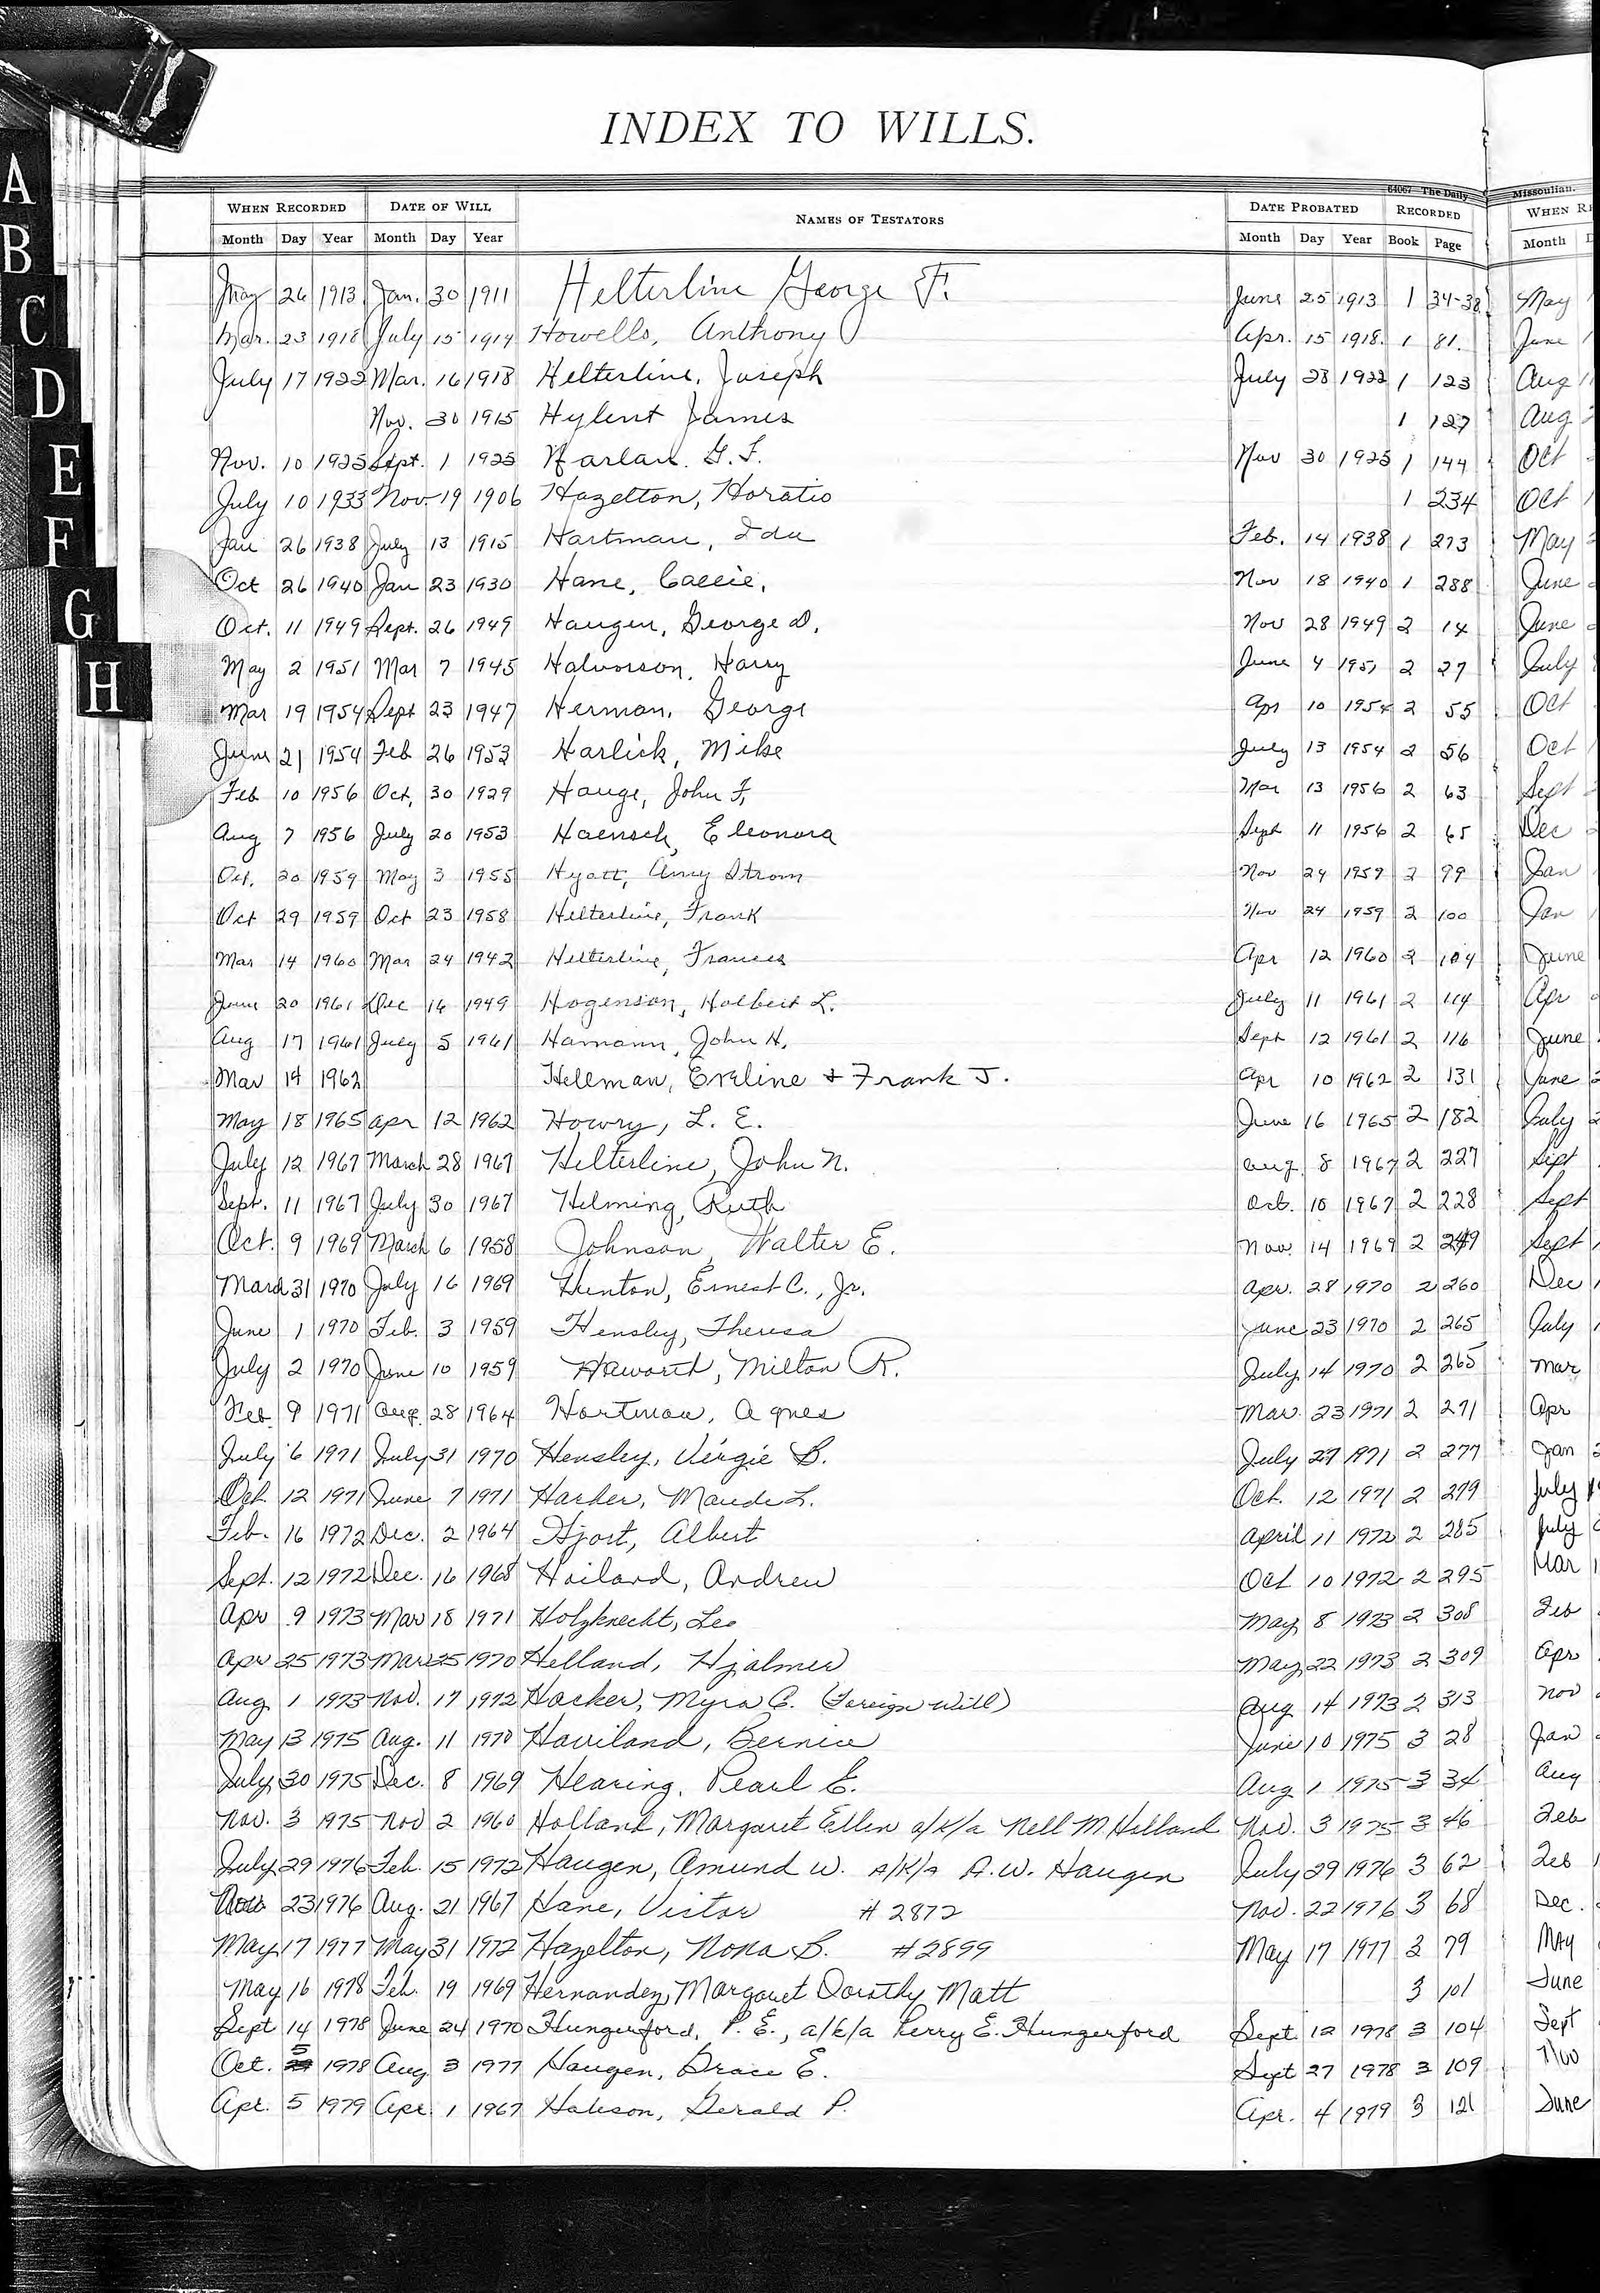 INDEX TO WILLS.
64067 The Daily Missoulian.
WHEN RECORDED DATE OF WILL NAMES OF TESTATORS DATE PROBATED RECORDED WHEN
Month Day Year Month Day Year Month Day Year Book Page Month
May 26 1913 Jan. 30 1911 Helterline George F. June 25 1913 1 34-38 May
Mar. 23 1918 July 15 1914 Howells, Anthony Apr. 15 1918. 1 81. June
A
July 17 1922 Mar. 16 1918 Helterline, Joseph July 28 1922 1 123 Aug
Nov. 30 1915 Hylent James 1 127 Aug
B
Nov. 10 1925 Sept. 1 1925 Harlan. G. F. Nov 30 1925 1 144 Oct
July 10 1933 Nov. 19 1906 Hazelton, Horatio 1 234 Oct
C
Jan 26 1938 July 13 1915 Hartman, Ida Feb. 14 1938 1 273 May
Oct 26 1940 Jan 23 1930 Hane, Callie. Nov 18 1940 1 288 June
D
Oct. 11 1949 Sept. 26 1949 Haugen, George D. Nov 28 1949 2 14 June
May 2 1951 Mar 7 1945 Halvorson, Harry June 4 1951 2 27 July
E
Mar 19 1954 Sept 23 1947 Herman, George Apr 10 1954 2 55 Oct
June 21 1954 Feb 26 1953 Harlick, Mike July 13 1954 2 56 Oct
F
Feb 10 1956 Oct. 30 1929 Hauge, John F. Mar 13 1956 2 63 Sept
Aug 7 1956 July 20 1953 Haensch, Eleonora Sept 11 1956 2 65 Dec
G
Oct. 20 1959 May 3 1955 Hyatt, Amy Strom Nov 24 1959 2 99 Jan
Oct 29 1959 Oct 23 1958 Helterline, Frank Nov 24 1959 2 100 Jan
H
Mar 14 1960 Mar 24 1942 Helterline, Frances Apr 12 1960 2 104 June
June 20 1961 Dec 16 1949 Hogenson, Holbert L. July 11 1961 2 114 Apr
Aug 17 1961 July 5 1961 Hamann, John H. Sept 12 1961 2 116 June
Mar 14 1962 Hellman, Eveline & Frank J. Apr 10 1962 2 131 June
May 18 1965 Apr 12 1962 Howry, L. E. June 16 1965 2 182 July
July 12 1967 March 28 1967 Helterline, John N. Aug. 8 1967 2 227 Sept
Sept. 11 1967 July 30 1967 Helming, Ruth Oct. 10 1967 2 228 Sept
Oct. 9 1969 March 6 1958 Johnson, Walter E. Nov. 14 1969 2 249 Sept
March 31 1970 July 16 1969 Hunton, Ernest C., Jr. Apr. 28 1970 2 260 Dec
June 1 1970 Feb. 3 1959 Hensley, Theresa June 23 1970 2 265 July
July 2 1970 June 10 1959 Haworth, Milton R. July 14 1970 2 265 Mar
Feb. 9 1971 Aug. 28 1964 Hartman, Agnes Mar. 23 1971 2 271 Apr
July 6 1971 July 31 1970 Hensley, Virgie B. July 27 1971 2 277 Jan
Oct. 12 1971 June 7 1971 Harker, Maude L. Oct. 12 1971 2 279 July
Feb. 16 1972 Dec. 2 1964 Hjort, Albert April 11 1972 2 285 July
Sept. 12 1972 Dec. 16 1968 Hoiland, Andrew Oct 10 1972 2 295 Mar
Apr 9 1973 Mar 18 1971 Holzknecht, Leo May 8 1973 2 308 Feb
Apr 25 1973 Mar 25 1970 Helland, Hjalmer May 22 1973 2 309 Apr
Aug 1 1973 Nov. 17 1972 Hacker, Myra C. (Foreign Will) Aug 14 1973 2 313 Nov
May 13 1975 Aug. 11 1970 Haviland, Bernice June 10 1975 3 28 Jan
July 30 1975 Dec. 8 1969 Hearing, Pearl E. Aug 1 1975 3 34 Aug
Nov. 3 1975 Nov 2 1960 Holland, Margaret Ellen a/k/a Nell M Holland Nov. 3 1975 3 46 Feb
July 29 1976 Feb. 15 1972 Haugen, Amund W. A/K/A A.W. Haugen July 29 1976 3 62 Feb
Nov. 23 1976 Aug. 21 1967 Hane, Victor # 2872 Nov. 22 1976 3 68 Dec.
May 17 1977 May 31 1972 Hazelton, Nona B. #2899 May 17 1977 3 79 May
May 16 1978 Feb. 19 1969 Hernandez, Margaret Dorothy Matt 3 101 June
Sept 14 1978 June 24 1970 Hungerford, P. E., a/k/a Perry E. Hungerford Sept. 12 1978 3 104 Sept
Oct. 5 1978 Aug 3 1977 Haugen, Grace E. Sept 27 1978 3 109 Nov
Apr. 5 1979 Apr. 1 1967 Haleson, Gerald P. Apr. 4 1979 3 121 June